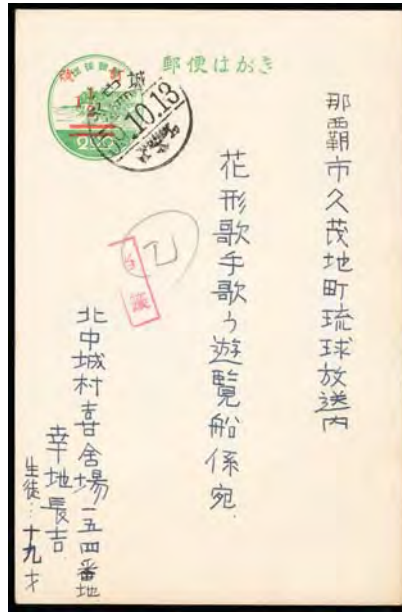 郵便はがき
中城
59.10.13
那覇市久茂地町琉球放送内
花形歌手歌う遊覧船係宛
乙
北中城村喜舎場一五四番地
幸地長吉
生徒…十九才